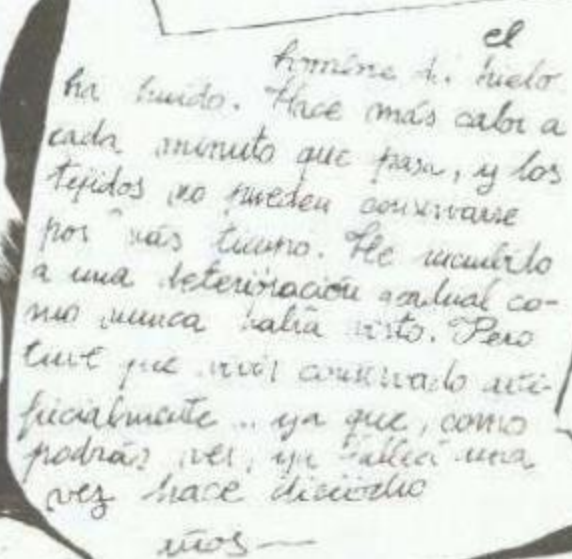 el
hombre de hielo
ha huido. Hace más calor a
cada minuto que pasa, y los
tejidos no pueden conservarse
por más tiempo. He
a una deterioración gradual co-
mo nunca había visto. Pero
tuve que vivir conservado arti-
ficialmente... ya que, como
podrás ver, ya fallecí una
vez hace dieciocho
años —